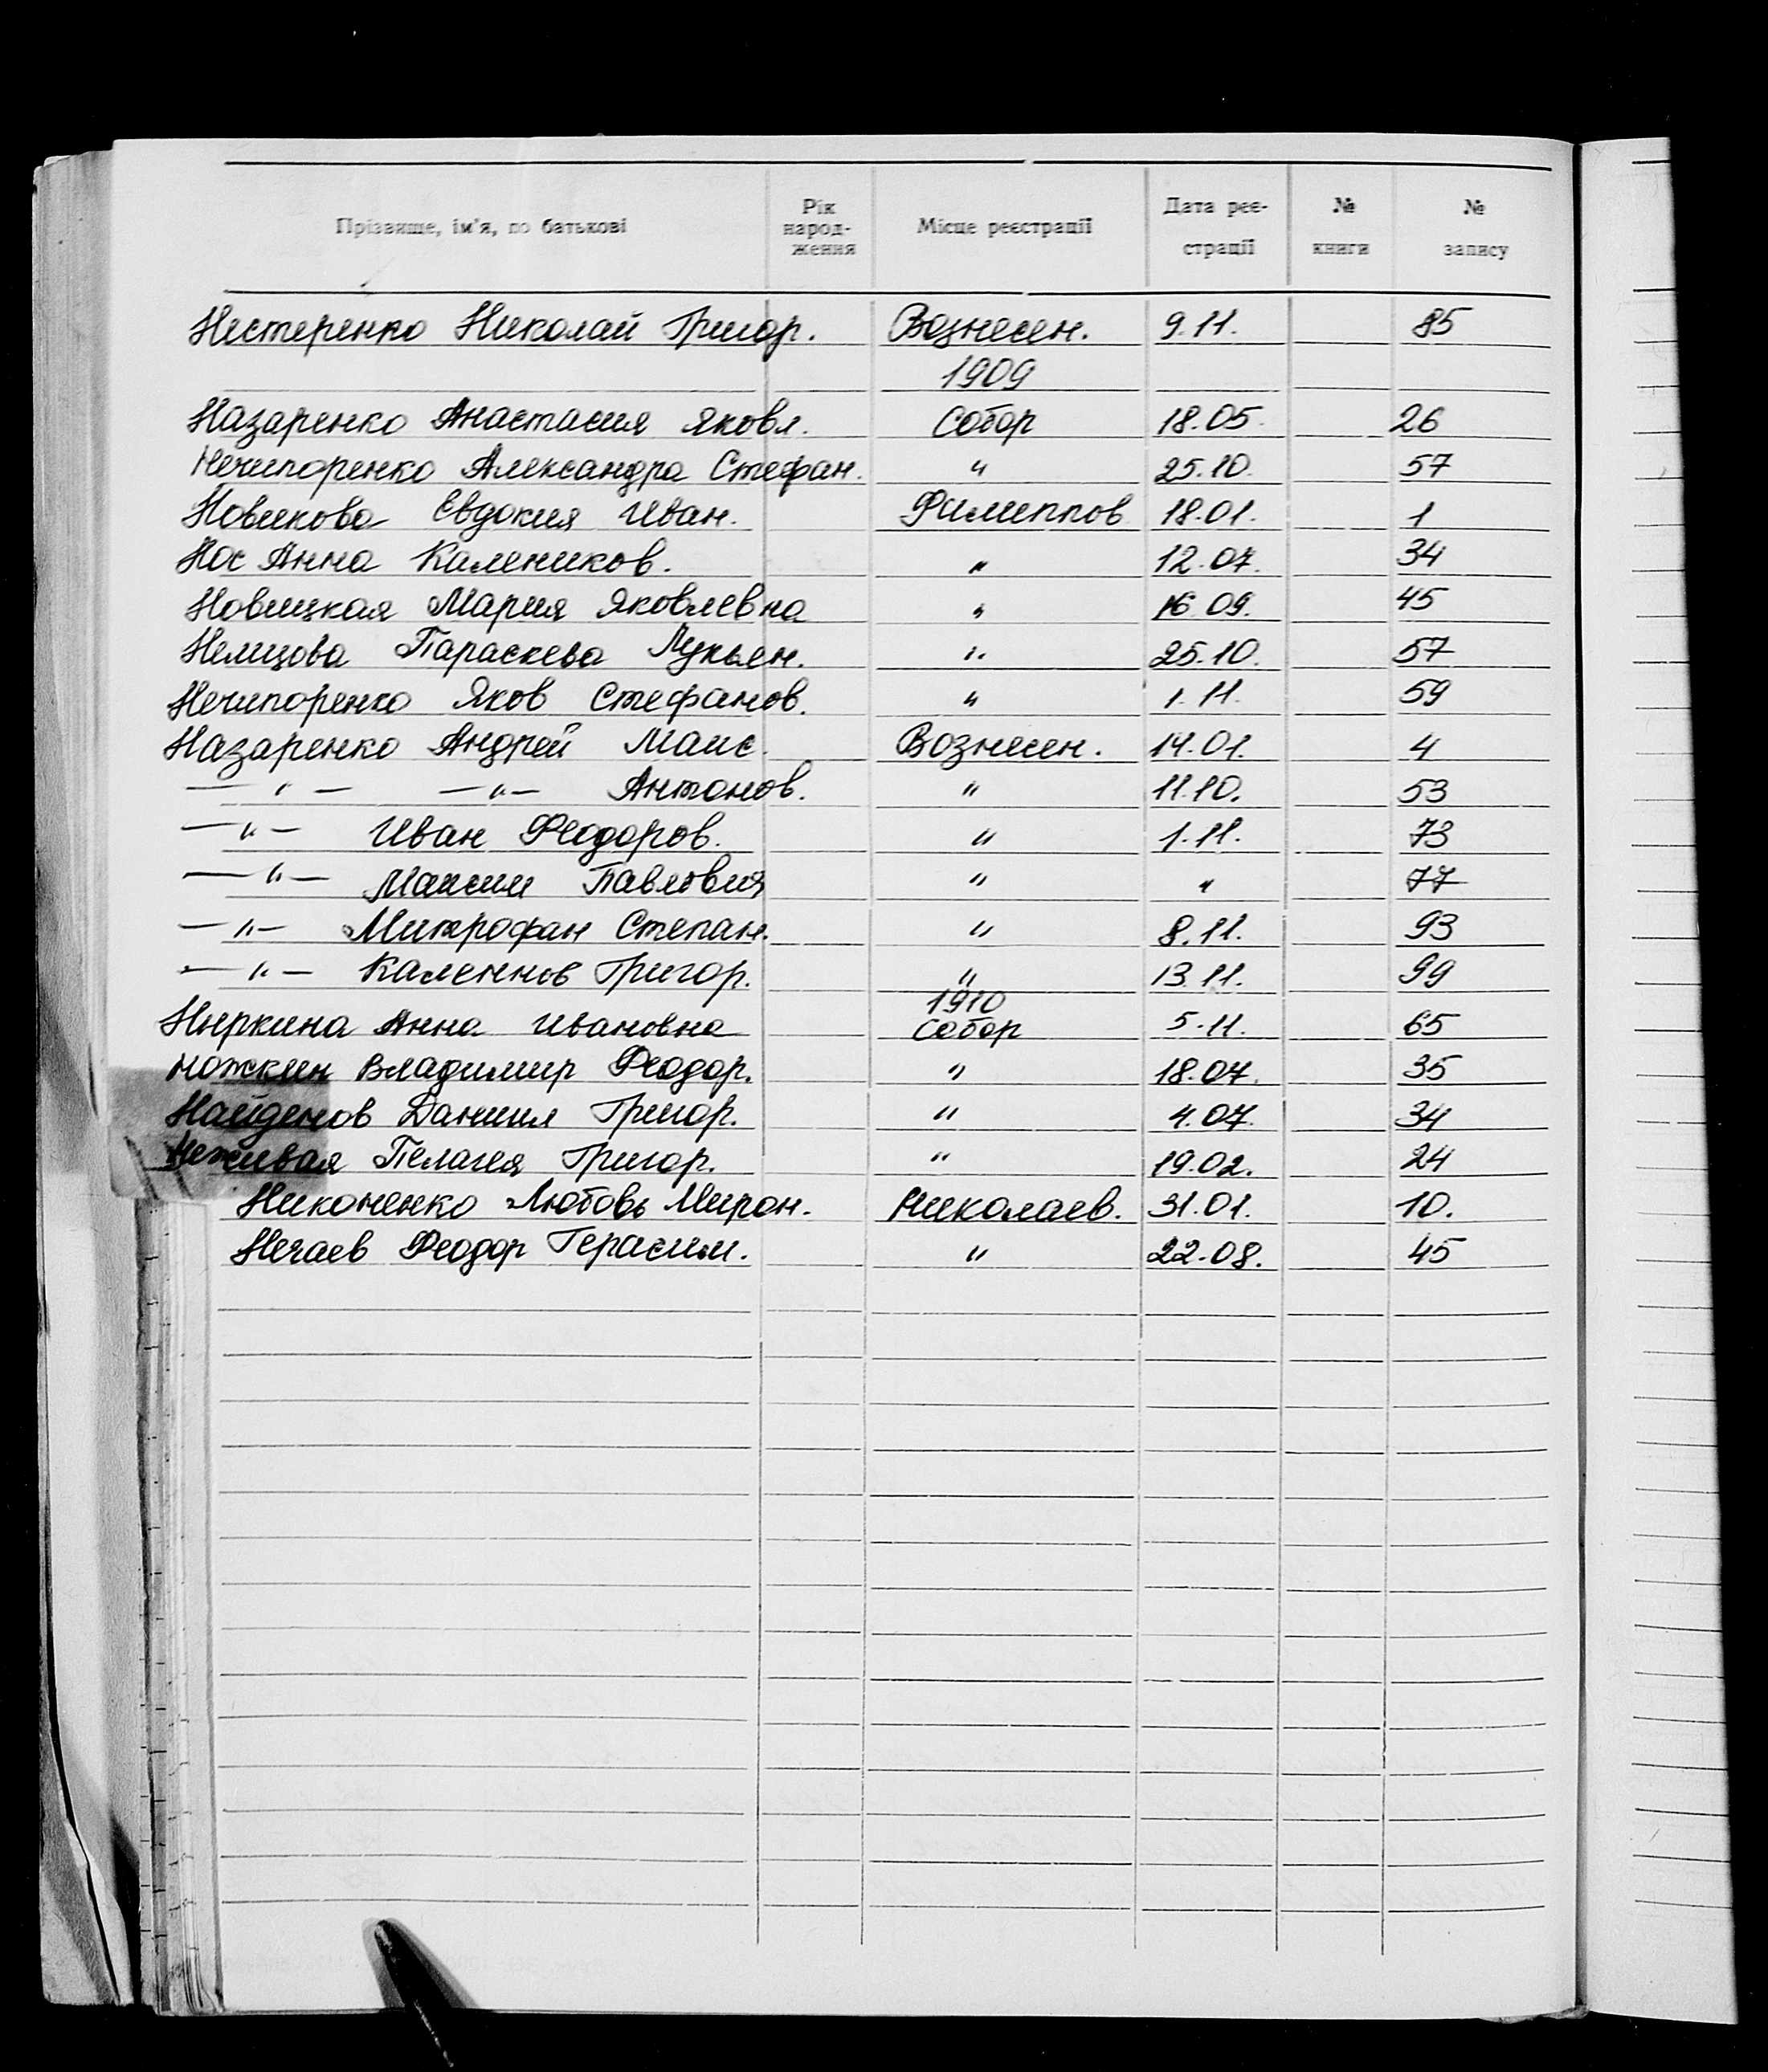 Прізвище, ім'я, по батькові Рік народ-ження Місце реєстрації Дата реє-страції № книги № запису
Нестеренко Николай Григор. Вознесен. 9.11. 85
1909
Назаренко Анастасия Яковл. Собор 18.05. 26
Нечипоренко Александра Стефан. " 25.10. 57
Новикова Евдокия Иван. Филиппов 18.01. 1
Нос Анна Калеников. " 12.07. 34
Новицкая Мария Яковлевна " 16.09. 45
Немцова Параскева Лукьян. " 25.10. 57
Нечипоренко Яков Стефанов. " 1.11. 59
Назаренко Андрей Макс. Вознесен. 14.01. 4
— " — — " — Антонов. " 11.10. 53
— " — Иван Феодоров. " 1.11. 73
— " — Максим Павлович " " 77
— " — Митрофан Степан. " 8.11. 93
— " — Григор. " 13.11. 99
1910
Ныркина Анна Ивановна Собор 5.11. 65
Ножкин Владимир Феодор. " 18.07. 35
Найденов Даниил Григор. " 4.07. 34
Неживая Пелагея Григор. " 19.02. 24
Никоненко Любовь Мирон. Николаев. 31.01. 10.
Нечаев Феодор Герасим. " 22.08. 45